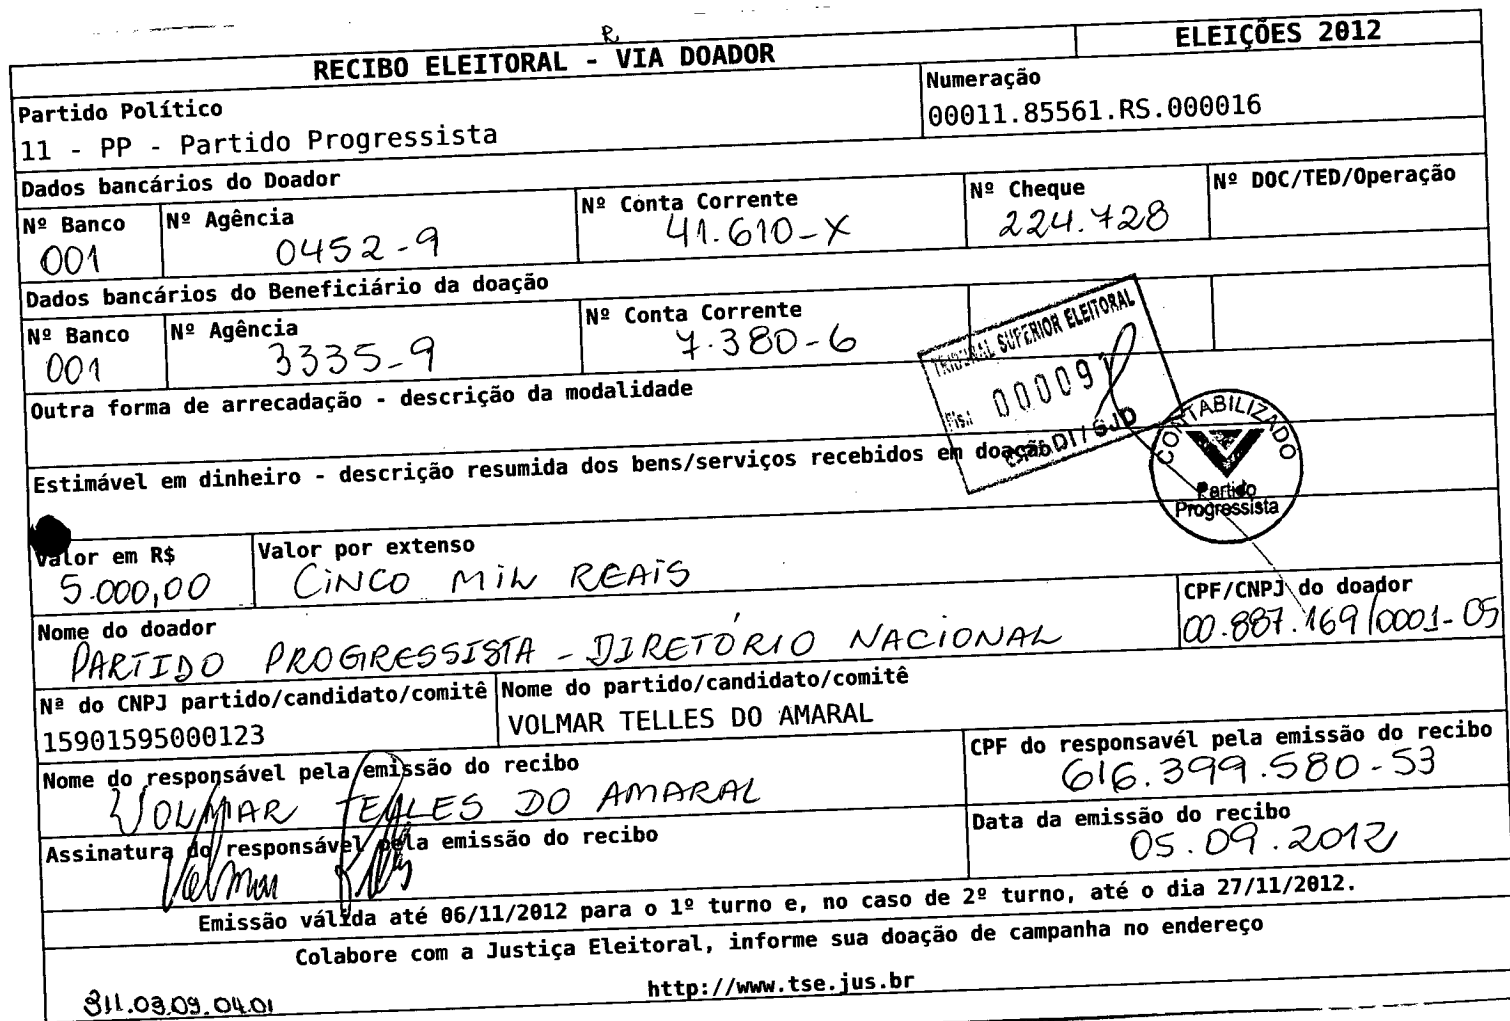 RECIBO ELEITORAL - VIA DOADOR
R
ELEIÇÕES 2012
Partido Político
11 - PP - Partido Progressista
Numeração
00011.85561.RS.000016
Dados bancários do Doador
Nº Banco
001
Nº Agência
0452-9
Nº Conta Corrente
41.610-X
Nº Cheque
224.728
Nº DOC/TED/Operação
Dados bancários do Beneficiário da doação
Nº Banco
001
Nº Agência
3335-9
Nº Conta Corrente
7.380-6
TRIBUNAL SUPERIOR ELEITORAL
Fls.: 00009
Outra forma de arrecadação - descrição da modalidade
CONTABILIZADO
Partido
Progressista
Estimável em dinheiro - descrição resumida dos bens/serviços recebidos em doação
Valor em R$
5.000,00
Valor por extenso
CINCO MIL REAIS
Nome do doador
PARTIDO PROGRESSISTA - DIRETÓRIO NACIONAL
CPF/CNPJ do doador
00.887.169/0001-05
Nª do CNPJ partido/candidato/comitê
15901595000123
Nome do partido/candidato/comitê
VOLMAR TELLES DO AMARAL
Nome do responsável pela emissão do recibo
VOLMAR TELLES DO AMARAL
CPF do responsavél pela emissão do recibo
616.399.580-53
Assinatura do responsável pela emissão do recibo
Volmar Telles
Data da emissão do recibo
05.09.2012
Emissão válida até 06/11/2012 para o 1º turno e, no caso de 2º turno, até o dia 27/11/2012.
Colabore com a Justiça Eleitoral, informe sua doação de campanha no endereço
http://www.tse.jus.br
311.03.09.04.01